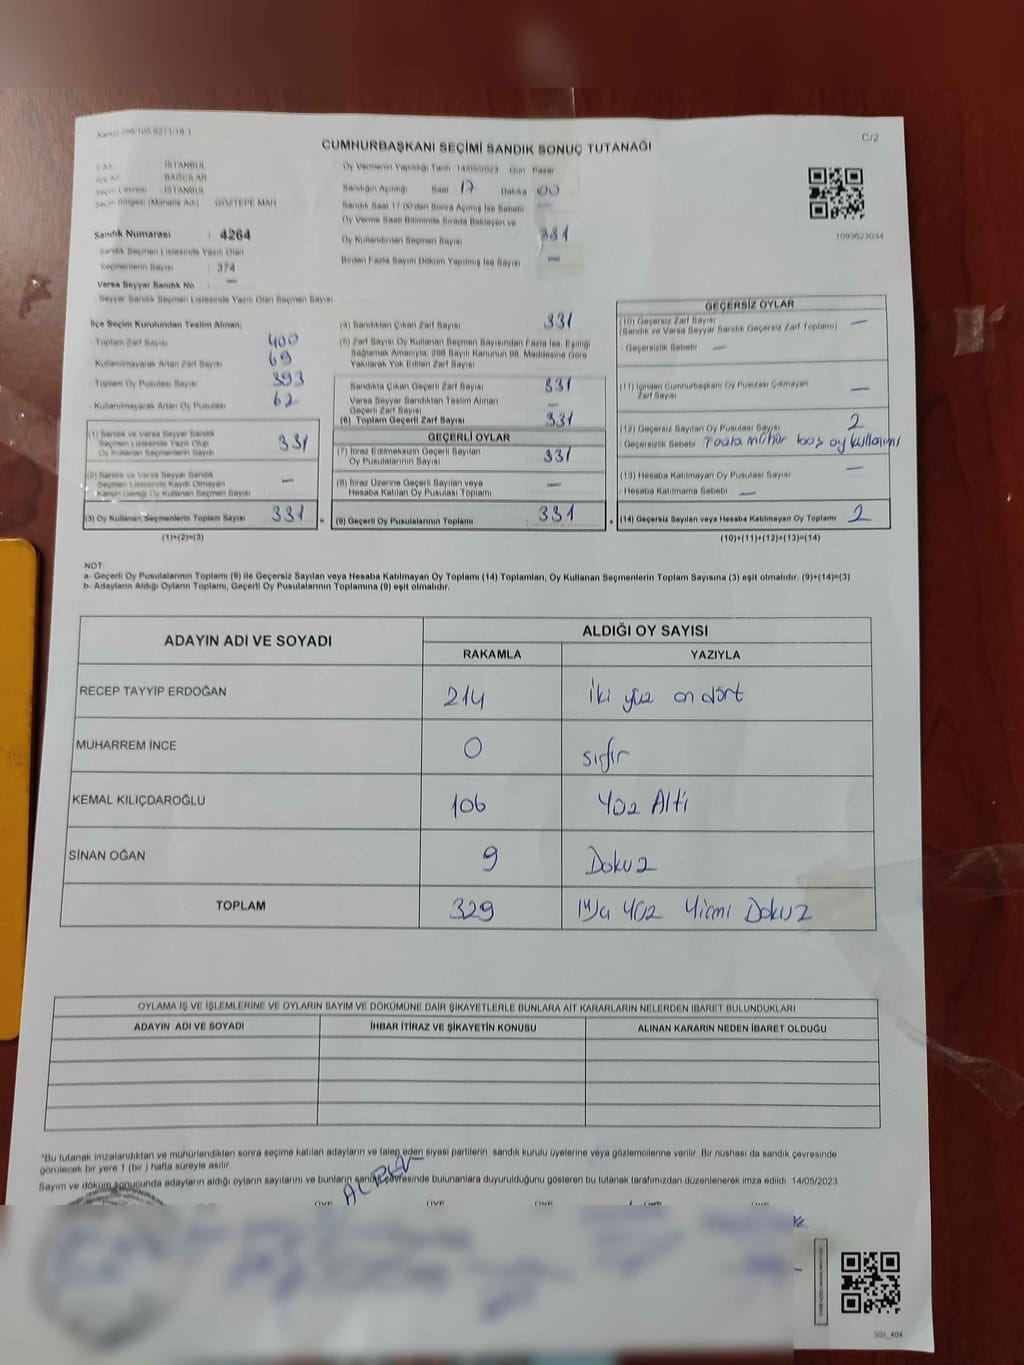 C/2
CUMHURBAŞKANI SEÇİMİ SANDIK SONUÇ TUTANAĞI
İSTANBUL
BAĞCILAR
İSTANBUL
Seçim Bölgesi (Mahalle Adı) : GÖZTEPE MAH
Sandık Numarası : 4264
Sandık Seçmen Listesinde Yazılı Olan
Seçmenlerin Sayısı : 374
Varsa Seyyar Sandık No : —
Seyyar Sandık Seçmen Listesinde Yazılı Olan Seçmen Sayısı
Oy Vermenin Yapıldığı Tarih 14/05/2023 Gün Pazar
Sandığın Açıldığı Saat 17 Dakika 00
Sandık Saat 17:00'den Sonra Açılmış İse Sebebi —
Oy Verme Saati Bitiminde Sırada Bekleyen ve
Oy Kullandırılan Seçmen Sayısı 331
Birden Fazla Sayım Döküm Yapılmış İse Sayısı —
1093623034
İlçe Seçim Kurulundan Teslim Alınan;
- Toplam Zarf Sayısı 400
- Kullanılmayarak Artan Zarf Sayısı 69
- Toplam Oy Pusulası Sayısı 393
- Kullanılmayarak Artan Oy Pusulası 62
(1) Sandık ve Varsa Seyyar Sandık
Seçmen Listesinde Yazılı Olup
Oy Kullanan Seçmenlerin Sayısı 331
(2) Sandık ve Varsa Seyyar Sandık
Seçmen Listesinde Kayıtlı Olmayan
Kanun Gereği Oy Kullanan Seçmen Sayısı —
(3) Oy Kullanan Seçmenlerin Toplam Sayısı 331 =
(1)+(2)=(3)
(4) Sandıktan Çıkan Zarf Sayısı 331
(5) Zarf Sayısı Oy Kullanan Seçmen Sayısından Fazla İse, Eşitliği
Sağlamak Amacıyla; 298 Sayılı Kanunun 98. Maddesine Göre
Yakılarak Yok Edilen Zarf Sayısı
Sandıkta Çıkan Geçerli Zarf Sayısı 331
Varsa Seyyar Sandıktan Teslim Alınan
Geçerli Zarf Sayısı —
(6) Toplam Geçerli Zarf Sayısı 331
GEÇERLİ OYLAR
(7) İtiraz Edilmeksizin Geçerli Sayılan
Oy Pusulalarının Sayısı 331
(8) İtiraz Üzerine Geçerli Sayılan veya
Hesaba Katılan Oy Pusulası Toplamı —
(9) Geçerli Oy Pusulalarının Toplamı 331 +
GEÇERSİZ OYLAR
(10) Geçersiz Zarf Sayısı
(Sandık ve Varsa Seyyar Sandık Geçersiz Zarf Toplamı) —
- Geçersizlik Sebebi —
(11) İçinden Cumhurbaşkanı Oy Pusulası Çıkmayan
Zarf Sayısı —
(12) Geçersiz Sayılan Oy Pusulası Sayısı 2
Geçersizlik Sebebi Fazla mühür boş oy kullanımı
(13) Hesaba Katılmayan Oy Pusulası Sayısı —
- Hesaba Katılmama Sebebi —
(14) Geçersiz Sayılan veya Hesaba Katılmayan Oy Toplamı 2
(10)+(11)+(12)+(13)=(14)
NOT:
a- Geçerli Oy Pusulalarının Toplamı (9) ile Geçersiz Sayılan veya Hesaba Katılmayan Oy Toplamı (14) Toplamları, Oy Kullanan Seçmenlerin Toplam Sayısına (3) eşit olmalıdır. (9)+(14)=(3)
b- Adayların Aldığı Oyların Toplamı, Geçerli Oy Pusulalarının Toplamına (9) eşit olmalıdır.
ADAYIN ADI VE SOYADI ALDIĞI OY SAYISI
RAKAMLA YAZIYLA
RECEP TAYYİP ERDOĞAN 214 iki yüz on dört
MUHARREM İNCE 0 sıfır
KEMAL KILIÇDAROĞLU 106 Yüz Altı
SİNAN OĞAN 9 Dokuz
TOPLAM 329 Yüz Yirmi Dokuz
OYLAMA İŞ VE İŞLEMLERİNE VE OYLARIN SAYIM VE DÖKÜMÜNE DAİR ŞİKAYETLERLE BUNLARA AİT KARARLARIN NELERDEN İBARET BULUNDUKLARI
ADAYIN ADI VE SOYADI İHBAR İTİRAZ VE ŞİKAYETİN KONUSU ALINAN KARARIN NEDEN İBARET OLDUĞU
*Bu tutanak imzalandıktan ve mühürlendikten sonra seçime katılan adayların ve talep eden siyasi partilerin sandık kurulu üyelerine veya gözlemcilerine verilir. Bir nüshası da sandık çevresinde
görülecek bir yere 1 (bir) hafta süreyle asılır.
Sayım ve döküm sonucunda adayların aldığı oyların sayılarını ve bunların sandık çevresinde bulunanlara duyurulduğunu gösteren bu tutanak tarafımızdan düzenlenerek imza edildi. 14/05/2023
ÜYE ÜYE ÜYE ÜYE ÜYE
SSI_404